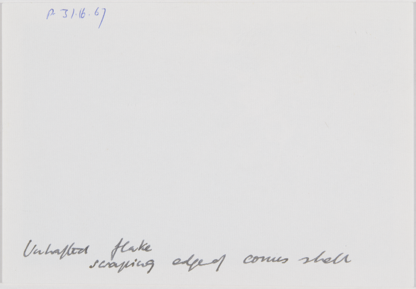 P 3/16.67
Unhafted flake
scraping edge of conus shell